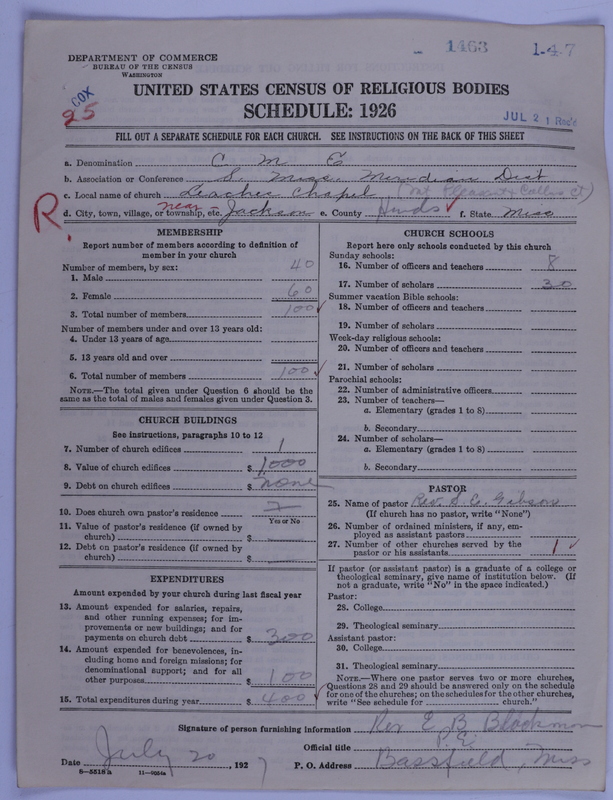 1463 1-47
DEPARTMENT OF COMMERCE
BUREAU OF THE CENSUS
WASHINGTON
COX
25
UNITED STATES CENSUS OF RELIGIOUS BODIES
SCHEDULE: 1926
JUL 21 Rec'd
FILL OUT A SEPARATE SCHEDULE FOR EACH CHURCH. SEE INSTRUCTIONS ON THE BACK OF THIS SHEET
a. Denomination C M E
b. Association or Conference S. Miss. Meridian Dist
c. Local name of church Chapel (Mt Pleasant & Ct)
R.
d. City, town, village, or near township, etc. Jackson e. County Hinds f. State Miss
MEMBERSHIP
Report number of members according to definition of
member in your church
Number of members, by sex:
1. Male 40
2. Female 60
3. Total number of members 100 ✓
Number of members under and over 13 years old:
4. Under 13 years of age
5. 13 years old and over
6. Total number of members 100 ✓
NOTE.—The total given under Question 6 should be
same as the total of males and females given under Question 3.
CHURCH BUILDINGS
See instructions, paragraphs 10 to 12
7. Number of church edifices 1
8. Value of church edifices $ 1000
9. Debt on church edifices $ none
10. Does church own pastor's residence
Yes or No
11. Value of pastor's residence (if owned by
church) $
12. Debt on pastor's residence (if owned by
church) $
EXPENDITURES
Amount expended by your church during last fiscal year
13. Amount expended for salaries, repairs,
and other running expenses; for im-
provements or new buildings; and for
payments on church debt $ 300
14. Amount expended for benevolences, in-
cluding home and foreign missions; for
denominational support; and for all
other purposes $ 100
15. Total expenditures during year $ 400 ✓
CHURCH SCHOOLS
Report here only schools conducted by this church
Sunday schools:
16. Number of officers and teachers 8
17. Number of scholars 30
Summer vacation Bible schools:
18. Number of officers and teachers
19. Number of scholars
Week-day religious schools:
20. Number of officers and teachers
21. Number of scholars
Parochial schools:
22. Number of administrative officers
23. Number of teachers—
a. Elementary (grades 1 to 8)
b. Secondary
24. Number of scholars—
a. Elementary (grades 1 to 8)
b. Secondary
PASTOR
25. Name of pastor Rev. S. C. Gibson
(If church has no pastor, write "None")
26. Number of ordained ministers, if any, em-
ployed as assistant pastors
27. Number of other churches served by the
pastor or his assistants 1 ✓
If pastor (or assistant pastor) is a graduate of a college or
theological seminary, give name of institution below. (If
not a graduate, write "No" in the space indicated.)
Pastor:
28. College
29. Theological seminary
Assistant pastor:
30. College
31. Theological seminary
NOTE.—Where one pastor serves two or more churches,
Questions 28 and 29 should be answered only on the schedule
for one of the churches; on the schedules for the other churches,
write "See schedule for church."
Signature of person furnishing information Rev E B Blackmon
Official title P. E.
Date July 20, 1927 P. O. Address Bassfield, Miss
8—5518 a 11—9054a